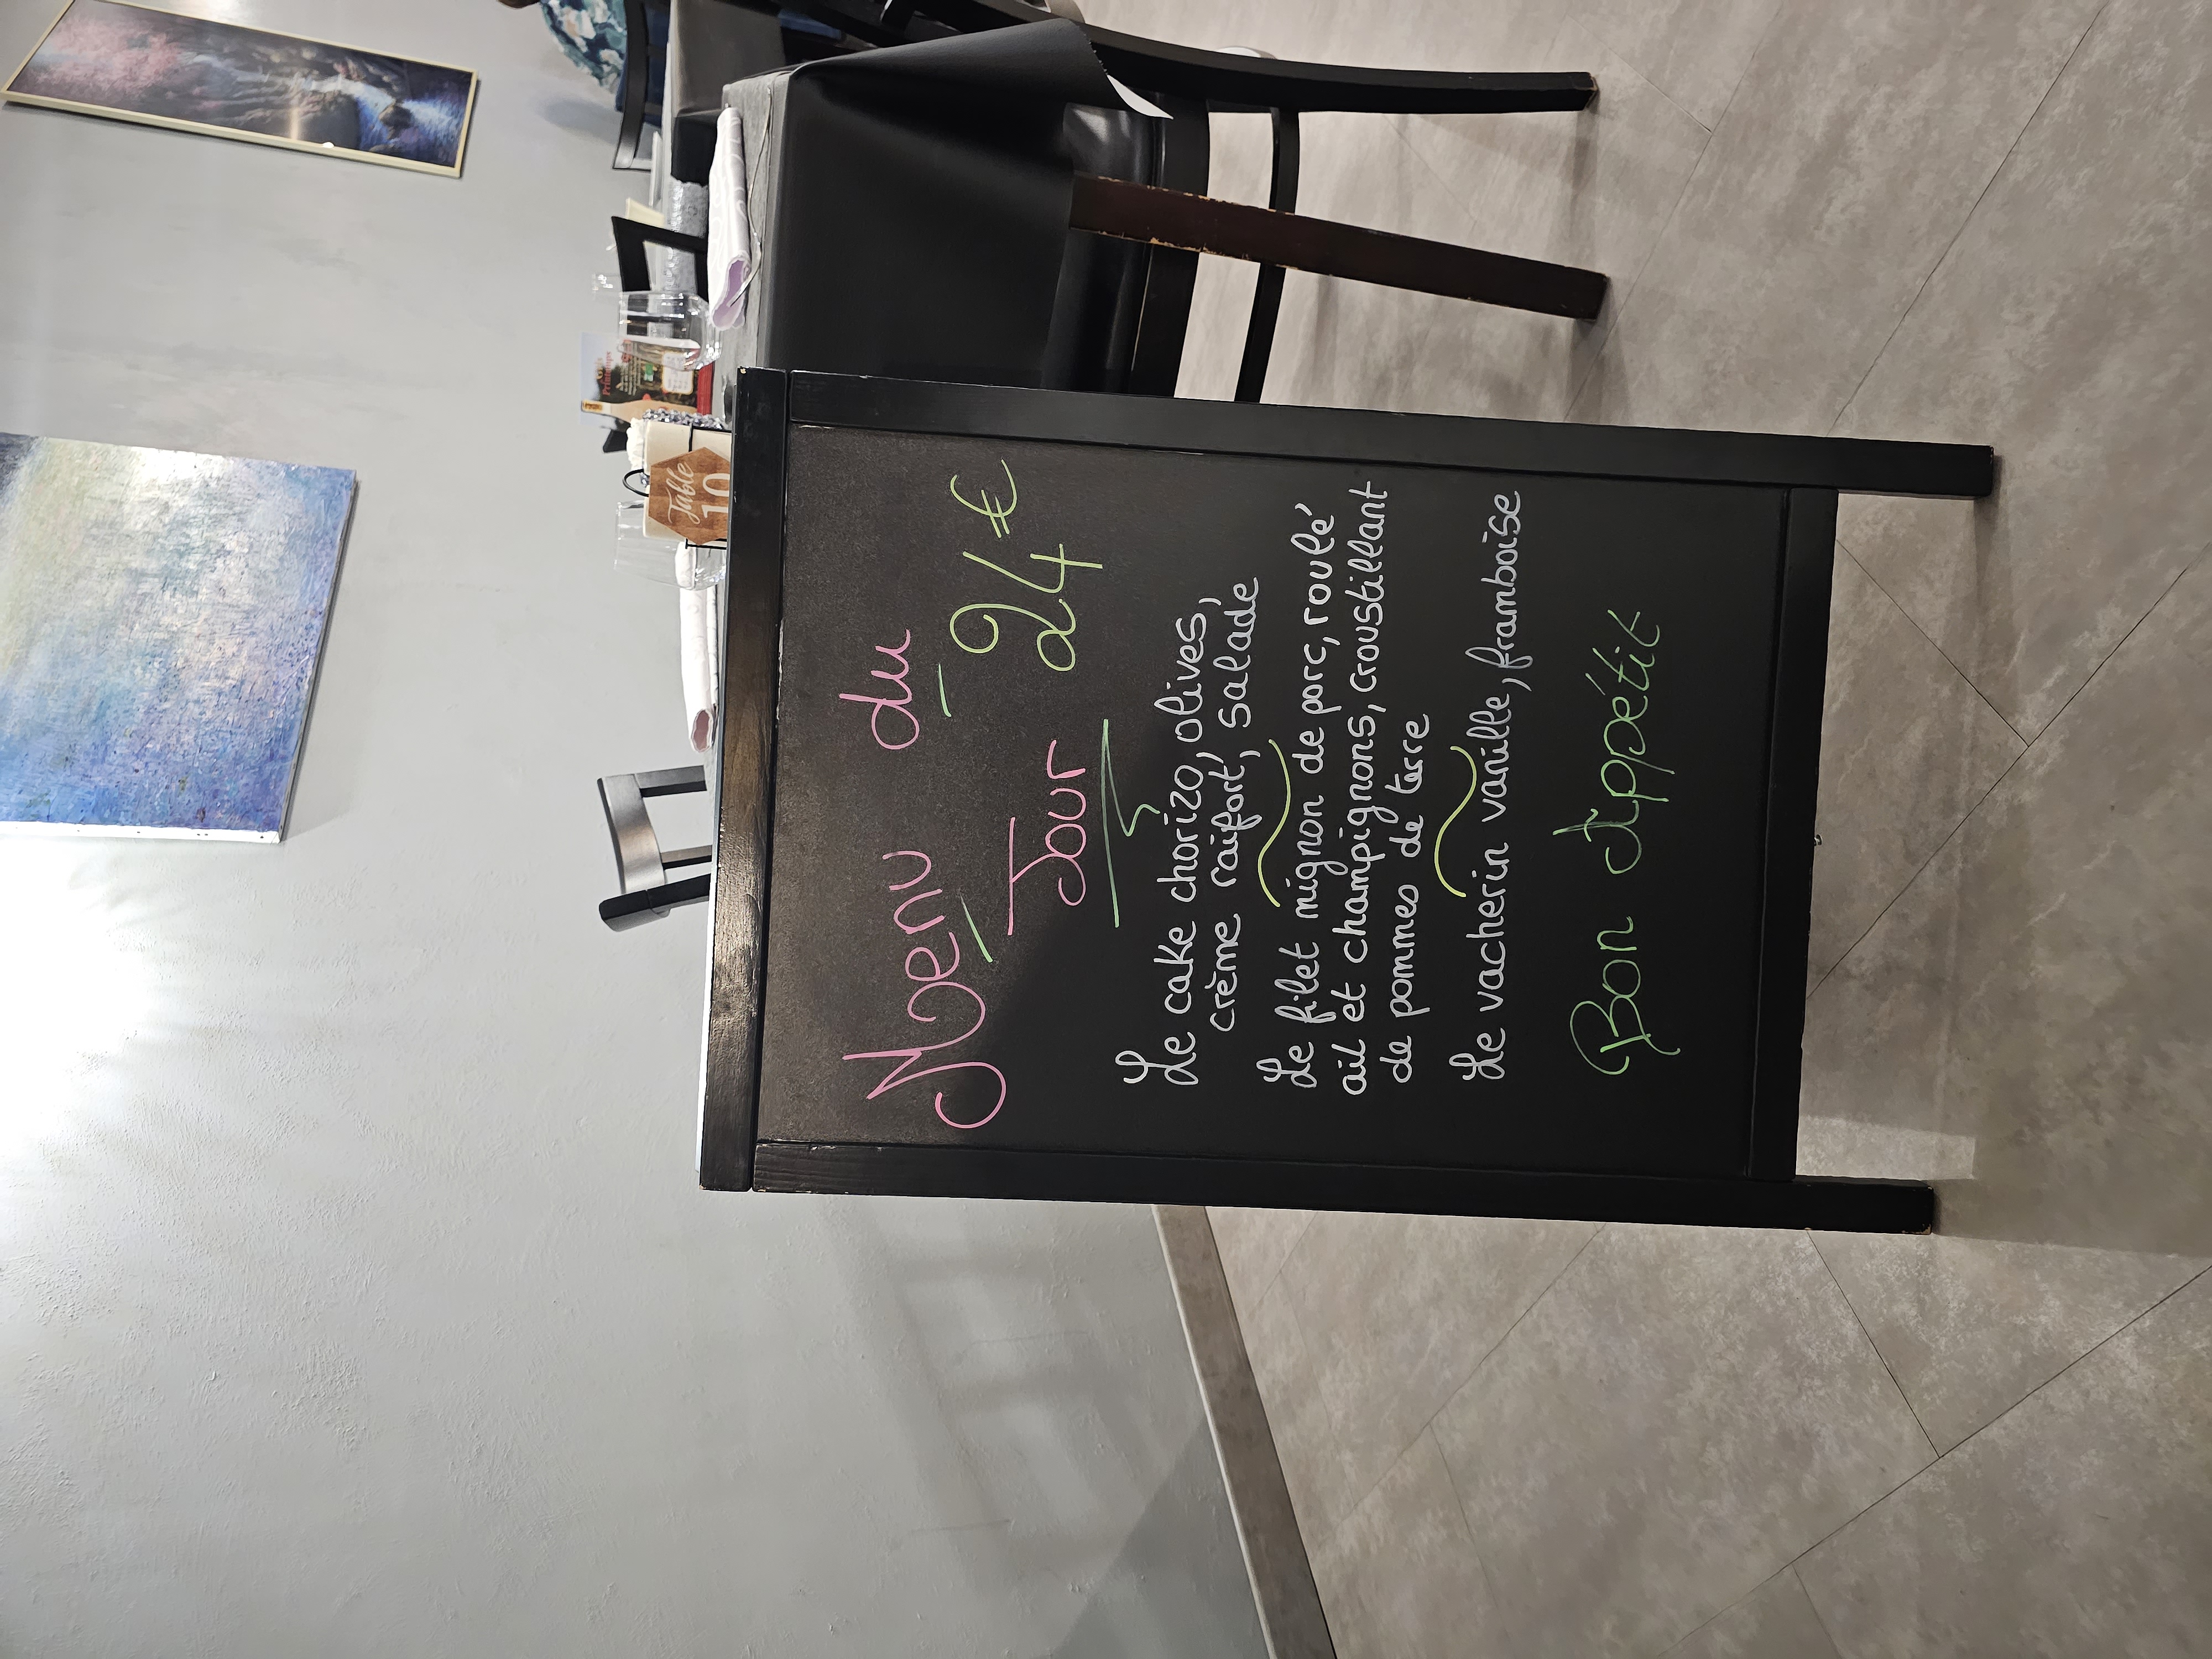 Menu du
Jour 24€
Le cake chorizo, olives,
crème raifort, salade
Le filet mignon de porc, roulé
ail et champignons, croustillant
de pommes de terre
Le vacherin vanille, framboise
Bon Appétit
Table
10